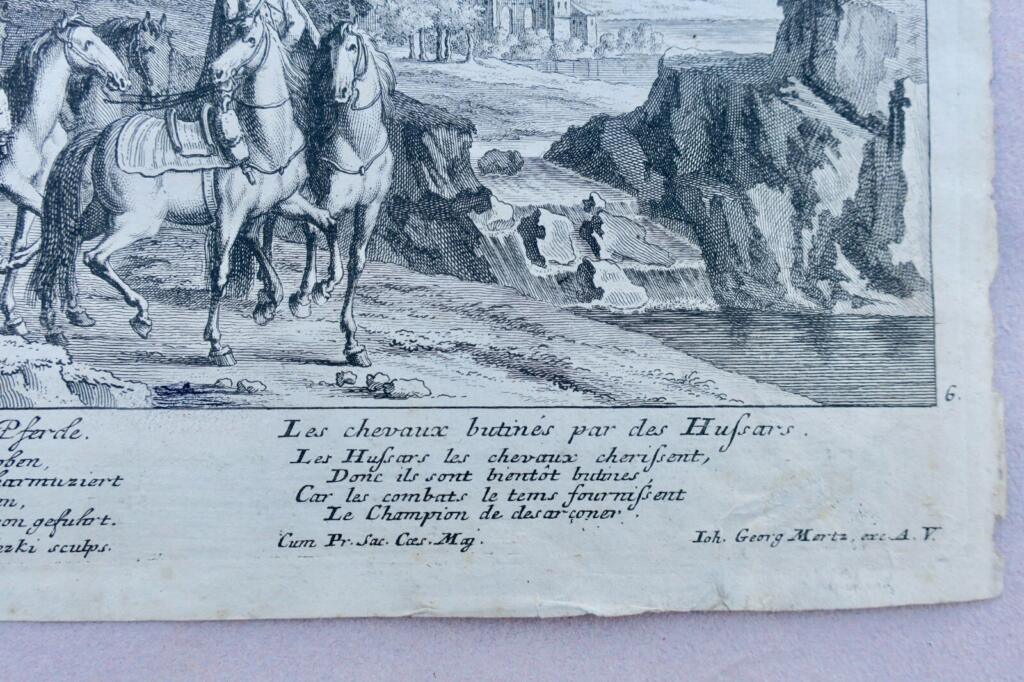 6.
Pferde.
oben,
harmuziert
en,
on gefuhrt.
ezki sculps.
Les chevaux butinés par des Hussars.
Les Hussars les chevaux cherissent,
Donc ils sont bientôt butines,
Car les combats le tems fournissent
Le Champion de desarçoner.
Cum Pr. Sac. Cæs. Maj.
Ioh. Georg Mertz, exc. A. V.